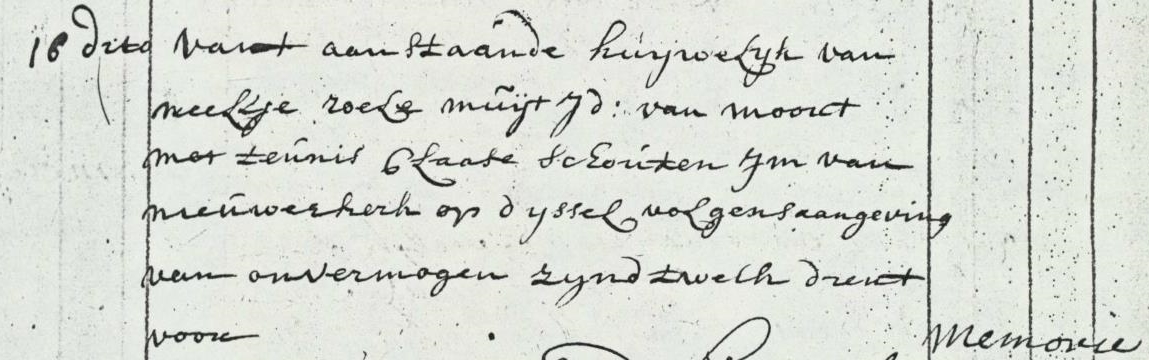 16 dito vant aanstaande huijwelyk van
neeltje roele muijt Jd: van moort
met teunis Claase schouten Jm van
nieuwerkerk op dyssel volgens aangeving
van onvermogen zynd twelk dient
voor Memorie